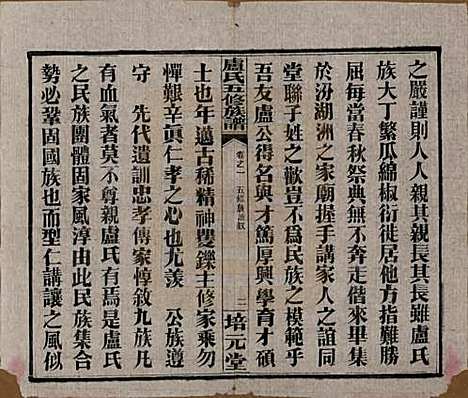 之嚴謹則人人親其親長其長雖盧氏
族大丁繁瓜綿椒衍徙居他方指難勝
屈每當春秋祭典無不奔走偕來畢集
於汾湖洲之家廟握手講家人之誼同
堂聯子姓之歡豈不爲民族之模範乎
吾友盧公得名與才篤厚興學育才碩
盧氏五修族譜
卷之一
五修族譜敘
二
培元堂
士也年邁古稀精神雙鑠主修家乘勿
憚艱辛眞仁孝之心也尤羡 公族遵
守 先代遺訓忠孝傳家惇敘九族凡
有血氣者莫不尊親盧氏有焉是盧氏
之民族團體固家風淳由此民族集合
勢必鞏固國族也而型仁講讓之風似